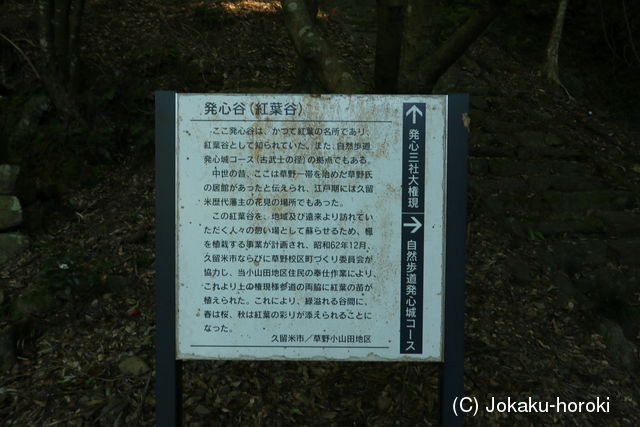 発心谷（紅葉谷）
ここ発心谷は、かつて紅葉の名所であり、
紅葉谷として知られていた。また、自然歩道
発心城コース（古武士の径）の拠点でもある。
中世の昔、ここは草野一帯を治めた草野氏
の居館があったと伝えられ、江戸期には久留
米歴代藩主の花見の場所でもあった。
この紅葉谷を、地域及び遠来より訪れてい
ただく人々の憩い場として蘇らせるため、楓
を植栽する事業が計画され、昭和62年12月、
久留米市ならびに草野校区町づくり委員会が
協力し、当小山田地区住民の奉仕作業により、
これより上の権現様参道の両脇に紅葉の苗が
植えられた。これにより、緑溢れる谷間に、
春は桜、秋は紅葉の彩りが添えられることに
なった。
久留米市／草野小山田地区
↑発心三社大権現
→自然歩道発心城コース
(C) Jokaku-horoki